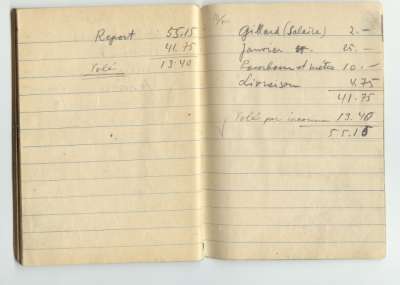 Report 55.15
41.75
Volé 13.40
Gillard (Salaire) 2.-
Janvier 25.-
et 10.-
Livraison 4.75
41.75
Volé par inconnu 13.40
55.15